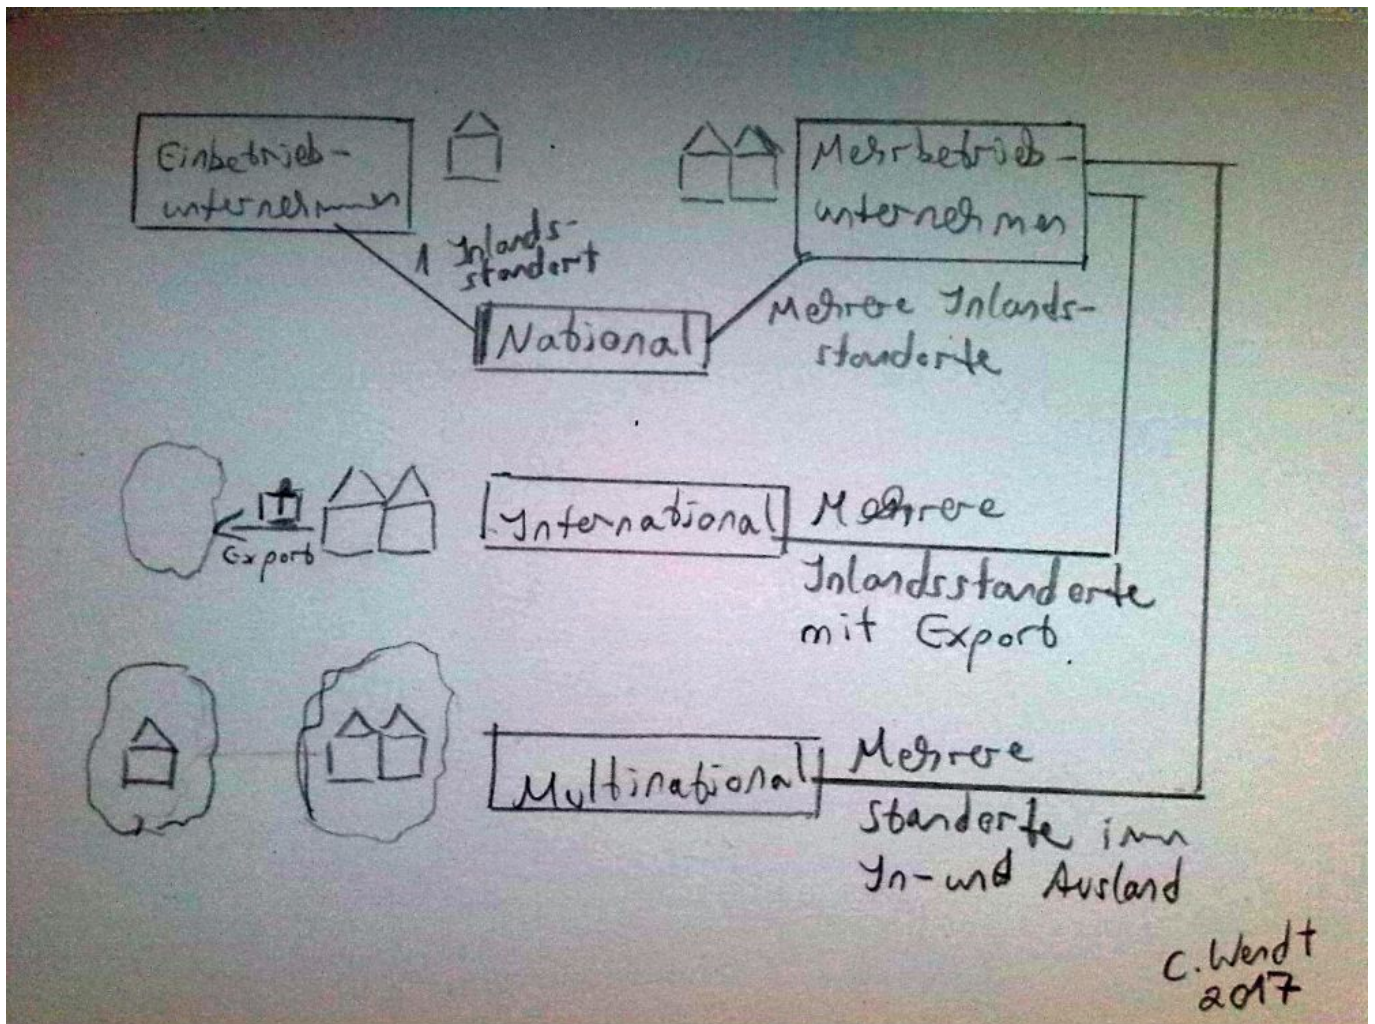 Einbetrieb-
unternehmen
1 Inlands-
standort
Mehrbetrieb-
unternehmen
National
Mehrere Inlands-
standorte
Export
International
Mehrere
Inlandsstandorte
mit Export.
Multinational
Mehrere
Standorte im
In- und Ausland
C. Wendt
2017